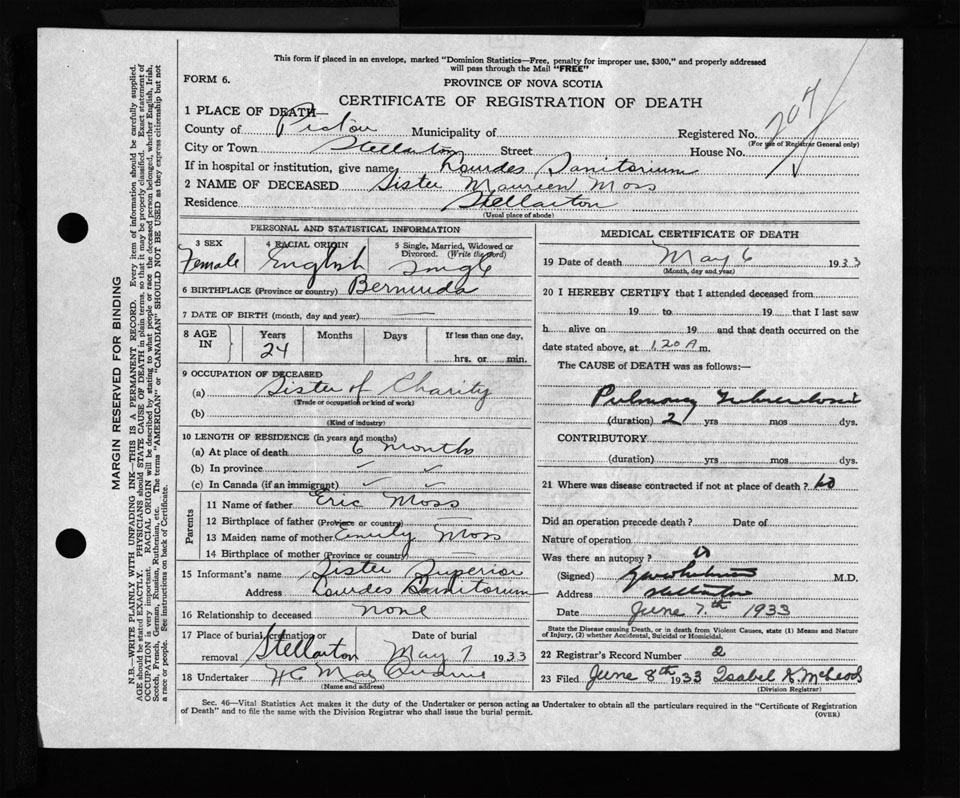 This form if placed in an envelope, marked "Dominion Statistics—Free, penalty for improper use, $300," and properly addressed
will pass through the Mail "FREE"
FORM 6.
PROVINCE OF NOVA SCOTIA
CERTIFICATE OF REGISTRATION OF DEATH
207
1 PLACE OF DEATH—
County of Pictou Municipality of Registered No.
(For use of Registrar General only)
City or Town Stellarton Street House No.
If in hospital or institution, give name Lourdes Sanitorium
2 NAME OF DECEASED Sister Maureen Moss
Residence Stellarton
(Usual place of abode)
PERSONAL AND STATISTICAL INFORMATION
3 SEX Female
4 RACIAL ORIGIN English
5 Single, Married, Widowed or Divorced. (Write the word) Single
6 BIRTHPLACE (Province or country) Bermuda
7 DATE OF BIRTH (month, day and year) —
8 AGE IN Years Months Days If less than one day,
24 hrs. or min.
9 OCCUPATION OF DECEASED
(a) Sister of Charity
(Trade or occupation or kind of work)
(b)
(Kind of industry)
10 LENGTH OF RESIDENCE (in years and months)
(a) At place of death 6 months
(b) In province ✓ ✓
(c) In Canada (if an immigrant) ✓ ✓
Parents
11 Name of father Eric Moss
12 Birthplace of father (Province or country) —
13 Maiden name of mother Emily Moss
14 Birthplace of mother (Province or country) —
15 Informant's name Sister Superior
Address Lourdes Sanitorium
16 Relationship to deceased none
17 Place of burial, cremation or removal Stellarton Date of burial May 7 1933
18 Undertaker
(Name and address)
MEDICAL CERTIFICATE OF DEATH
19 Date of death May 6 1933
(Month, day and year)
20 I HEREBY CERTIFY that I attended deceased from
19 to 19 that I last saw
h alive on 19 and that death occurred on
date stated above, at 1.20 A m.
The CAUSE of DEATH was as follows:—
Pulmonary Tuberculosis
(duration) 2 yrs mos dys.
CONTRIBUTORY
(duration) yrs mos dys.
21 Where was disease contracted if not at place of death?
Did an operation precede death? Date of
Nature of operation
Was there an autopsy?
(Signed) M.D.
Address Stellarton
Date June 7th 1933
State the Disease causing Death, or in death from Violent Causes, state (1) Means and Nature
of Injury, (2) whether Accidental, Suicidal or Homicidal.
22 Registrar's Record Number 2
23 Filed June 8th 1933 Isabel McLeod
(Division Registrar)
Sec. 46—Vital Statistics Act makes it the duty of the Undertaker or person acting as Undertaker to obtain all the particulars required in the "Certificate of Registration
of Death" and to file the same with the Division Registrar who shall issue the burial permit.
(OVER)
MARGIN RESERVED FOR BINDING
N.B.—WRITE PLAINLY WITH UNFADING INK—THIS IS A PERMANENT RECORD. Every item of information should be carefully supplied.
AGE should be stated EXACTLY. PHYSICIANS should STATE CAUSE OF DEATH in plain terms, so that it may be properly classified. Exact statement of
OCCUPATION is very important. RACIAL ORIGIN will be described by stating to what people or race the deceased person belonged, whether English, Irish,
Scotch, French, German, Russian, Ruthenian, etc. The terms "AMERICAN" or "CANADIAN" SHOULD NOT BE USED as they express citizenship but not
a race or people. See instructions on back of Certificate.